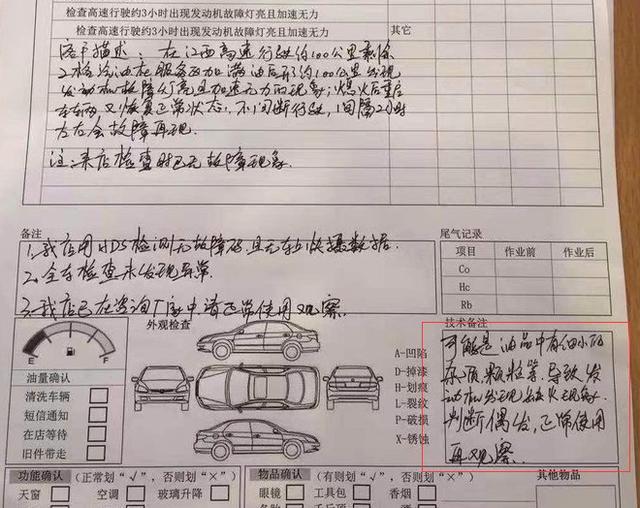 检查高速行驶约3小时出现发动机故障灯亮且加速无力
检查高速行驶约3小时出现发动机故障灯亮且加速无力
其它
客户描述：在江西高速行驶约100公里剩余
2格汽油在服务区加满油后行约100公里发现
发动机故障灯亮且加速无力的现象；熄火后重启
左右两又恢复正常状态，不间断行驶，间隔2小时
左右会故障再现.
注：来店检查时已无故障现象.
备注
1.我店用HDS检测无故障码且无车上快摄数据.
2.全车检查未发现异常.
3.我店已在咨询厂家中.请正常使用观察.
尾气记录
项目 作业前 作业后
Co
Hc
Rb
外观检查
E F
油量确认
清洗车辆
短信通知
在店等待
旧件带走
A-凹陷
D-掉漆
H-划痕
L-裂纹
P-破损
X-锈蚀
技术备注
可能是油品中有细小的
杂质颗粒等.导致发
动机发现缺火现象.
判断偶发，正常使用
再观察.
功能确认 (正常划“√”，否则划“×”)
物品确认 (有则划“√”，否则划“×”)
其他物品
天窗 空调 玻璃升降
眼镜 工具包 香烟